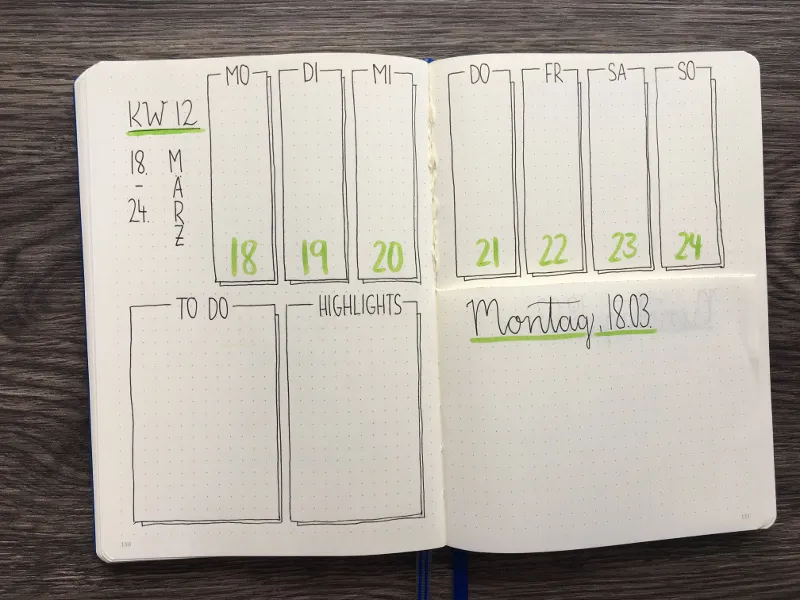 KW 12
18. - 24. MÄRZ
MO DI MI DO FR SA SO
18 19 20 21 22 23 24
TO DO
HIGHLIGHTS
Montag, 18.03.